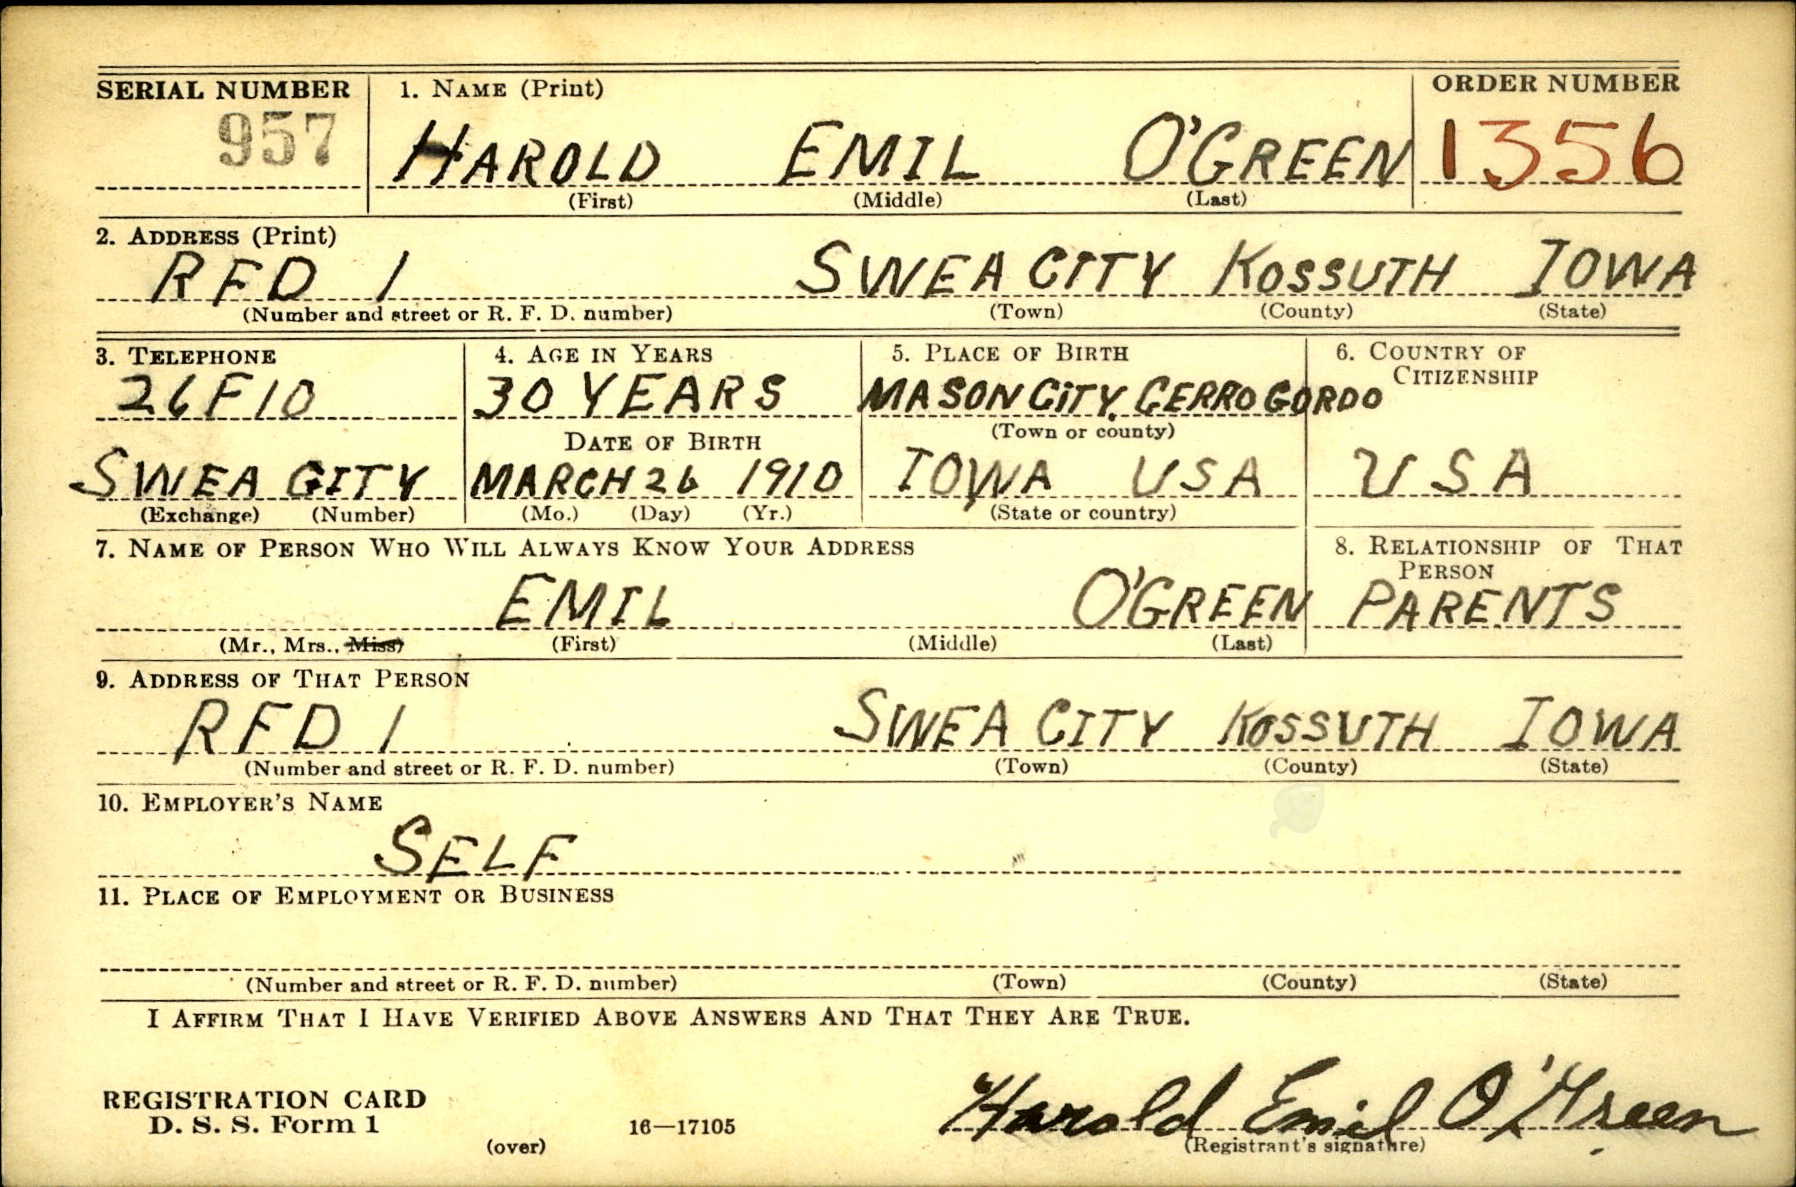 SERIAL NUMBER 1. NAME (Print) ORDER NUMBER
957 HAROLD EMIL O'GREEN 1356
(First) (Middle) (Last)
2. ADDRESS (Print)
RFD 1 SWEA CITY KOSSUTH IOWA
(Number and street or R. F. D. number) (Town) (County) (State)
3. TELEPHONE 4. AGE IN YEARS 5. PLACE OF BIRTH 6. COUNTRY OF CITIZENSHIP
26F10 30 YEARS MASON CITY, CERRO GORDO
DATE OF BIRTH (Town or county)
SWEA CITY MARCH 26 1910 IOWA USA USA
(Exchange) (Number) (Mo.) (Day) (Yr.) (State or country)
7. NAME OF PERSON WHO WILL ALWAYS KNOW YOUR ADDRESS 8. RELATIONSHIP OF THAT PERSON
EMIL O'GREEN PARENTS
(Mr., Mrs., Miss) (First) (Middle) (Last)
9. ADDRESS OF THAT PERSON
RFD 1 SWEA CITY KOSSUTH IOWA
(Number and street or R. F. D. number) (Town) (County) (State)
10. EMPLOYER'S NAME
SELF
11. PLACE OF EMPLOYMENT OR BUSINESS
(Number and street or R. F. D. number) (Town) (County) (State)
I AFFIRM THAT I HAVE VERIFIED ABOVE ANSWERS AND THAT THEY ARE TRUE.
REGISTRATION CARD
D. S. S. Form 1 16—17105 Harold Emil O'Green
(over) (Registrant's signature)